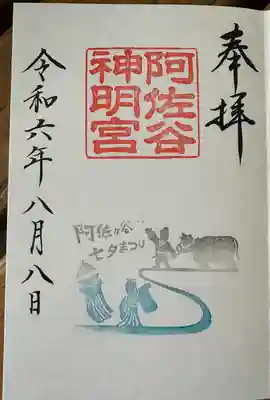 奉拝
阿佐谷
神明宮
阿佐ヶ谷…
七夕まつり
令和六年八月八日